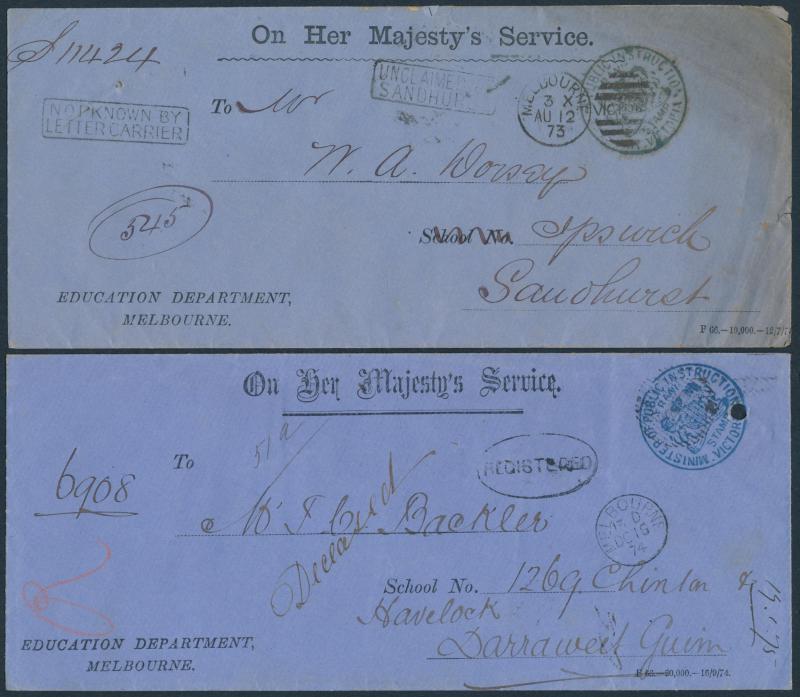 On Her Majesty's Service.
S 11424
UNCLAIMED
SANDHURST
MELBOURNE
3 X
AU 12
73
PUBLIC INSTRUCTION
VICTORIA
STAMP
NOT KNOWN BY
LETTER CARRIER
To Mr
W. A. Dorsey
545
School No. Ipswich
Sandhurst
EDUCATION DEPARTMENT,
MELBOURNE.
P 66.—10,000.—12/7/7
On Her Majesty's Service.
MINISTER OF PUBLIC INSTRUCTION
FRANK
STAMP
VICTORIA
51a
To
REGISTERED
6908
Mr J. C. Backler
Declared
MELBOURNE
74
School No. 1269 Chinton &
Havelock
Darraweit Guim
19.1.75
EDUCATION DEPARTMENT,
MELBOURNE.
P 66.—20,000.—16/9/74.